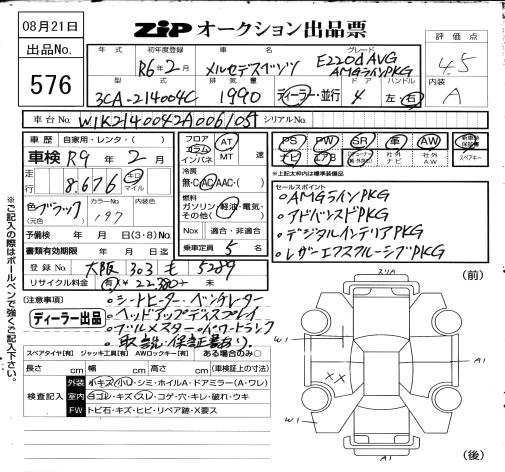 08月21日
ZIP オークション出品票
出品No.
576
年式 初年度登録 車名 グレード 評価点
R6年2月 メルセデスベンツ E220d AVG AMGラインPKG 4.5
型式 排気量 ドア ハンドル 内装
3CA-214004C 1990 ディーラー・並行 4 左・右 A
車台No. W1K2140042A006105 シリアルNo.
車歴 自家用・レンタ・( )
車検 R9年2月
フロア コラム インパネ
AT MT 速
PS PW SR 革 AW 新車時保証書
ナビ エアB 社外ナビ 社外AW スペアキー
※上記太枠内は標準装備品
走行 8,676 キロ マイル
冷房 無・C・AC・AAC・( )
色 ブラック (元色) カラーNo. 197 内装色
燃料 ガソリン・軽油・電気・その他( )
セールスポイント
・AMGラインPKG
・アドバンスドPKG
・デジタルインテリアPKG
・レザーエクスクルーシブPKG
予備検 年 月 日(3・8)No.
Nox 適合・非適合
書類有効期限 年 月 日迄
乗車定員 5 名
登録No. 大阪 303 も 5289
リサイクル料金 有 ¥22,380 未
(前)
注意事項
ディーラー出品
・シートヒーター・ベンチレーター
・ヘッドアップディスプレイ
・ブルメスター・パワートランク
・取説・保証書あり。
スペアタイヤ【有】 ジャッキ工具【有】 AWロックキー【有】 ある場合のみ○
長さ cm 幅 cm 高さ cm (車検証上の寸法)
検査記入
外装 小キズ・小凹・シミ・ホイルA・ドアミラー(A・ワレ)
室内 ヨゴレ・キズ・スレ・コゲ・穴・キレ・破れ・ウキ
FW トビ石・キズ・ヒビ・リペア跡・X要ス
スリA
W1
A1
XX
W1
A1
(後)
※ご記入の際はボールペンで強くご記入下さい。